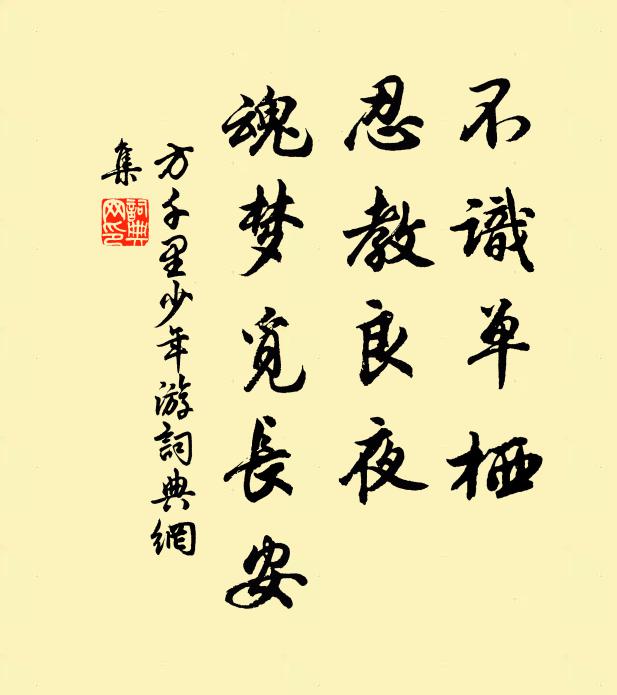 不識单栖
忍教良夜
魂梦觅長安
方千里少年游詞典網
集
詞典网印